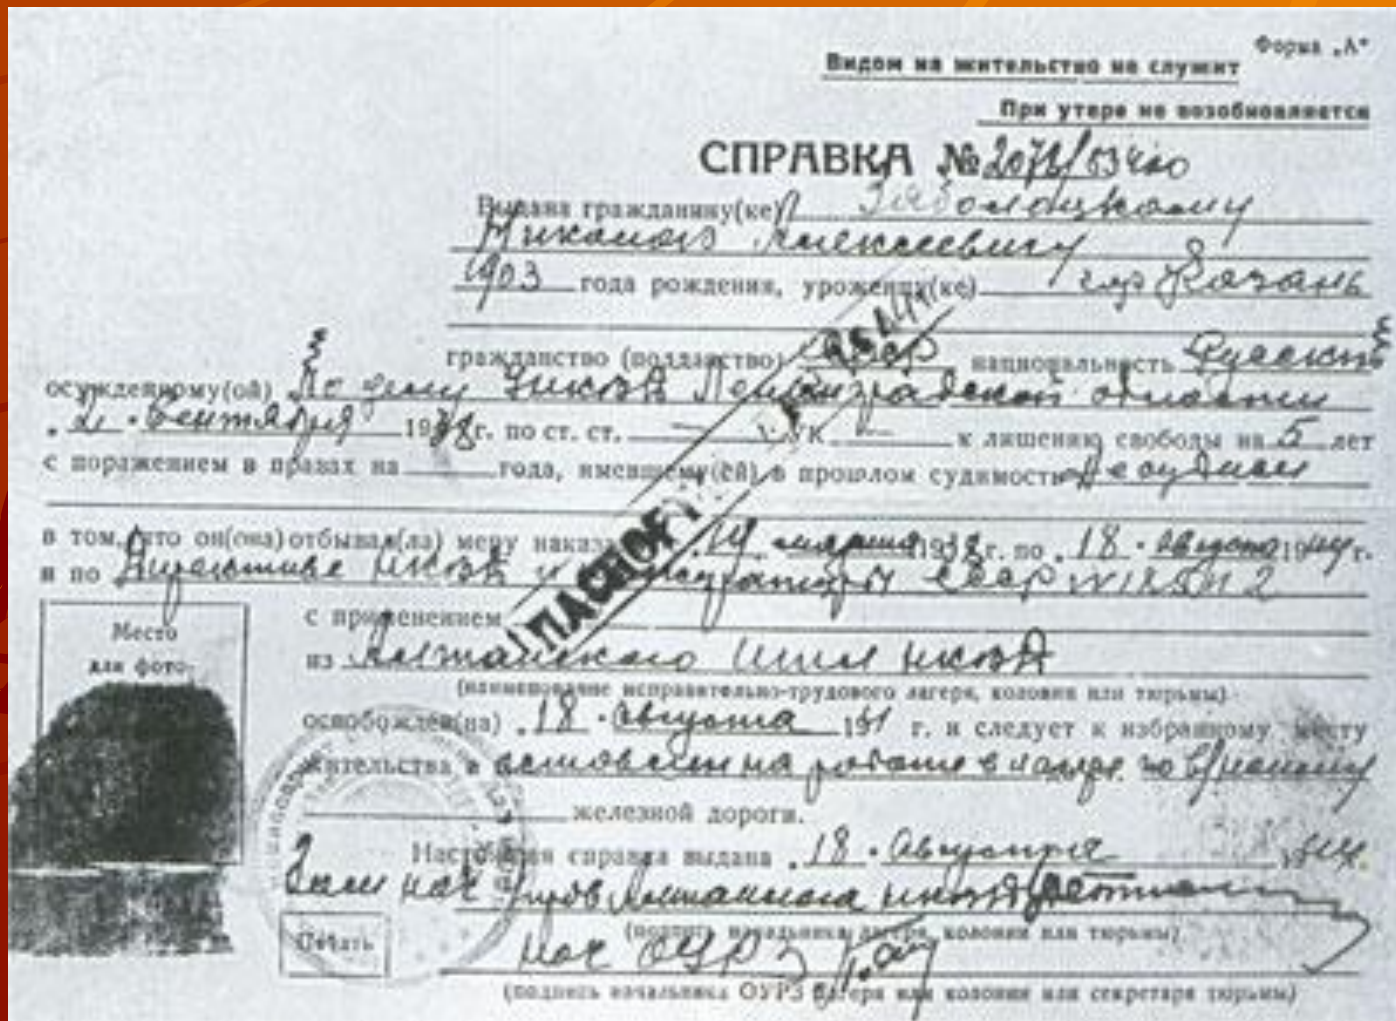 Форма „А"
Видом на жительство не служит
При утере не возобновляется
СПРАВКА №2078/53400
Выдана гражданину(ке) Заболоцкому
Николаю Алексеевичу
1903 года рождения, уроженцу(ке) гор Казань
гражданство (подданство) СССР национальность Русский
осужденному(ой) По делу УНКВД Ленинградской области
„2" Сентября 1938 г. по ст. ст. — УК к лишению свободы на 5 лет
с поражением в правах на года, имевшему(ей) в прошлом судимость Не судим
в том, что он(она) отбывал(ла) меру наказа 19 марта 1938 г. по „18" Августа 1944 г.
и по Директиве НКВД и Прокуратуры СССР № 185
с применением
ПАСПОРТ
из Алтайского НКВД
(наименование исправительно-трудового лагеря, колонии или тюрьмы)
Место
для фото-
освобожден(на) „18" Августа 194 г. и следует к избранному месту
жительства в оставлен на работе в лагере по в/найму
железной дороги.
Настоящая справка выдана „18" Августа 1944.
Зам нач Алтайского НКВД
(подпись начальника лагеря, колонии или тюрьмы)
Печать
Нач ОУРЗ
(подпись начальника ОУРЗ лагеря или колонии или секретаря тюрьмы)